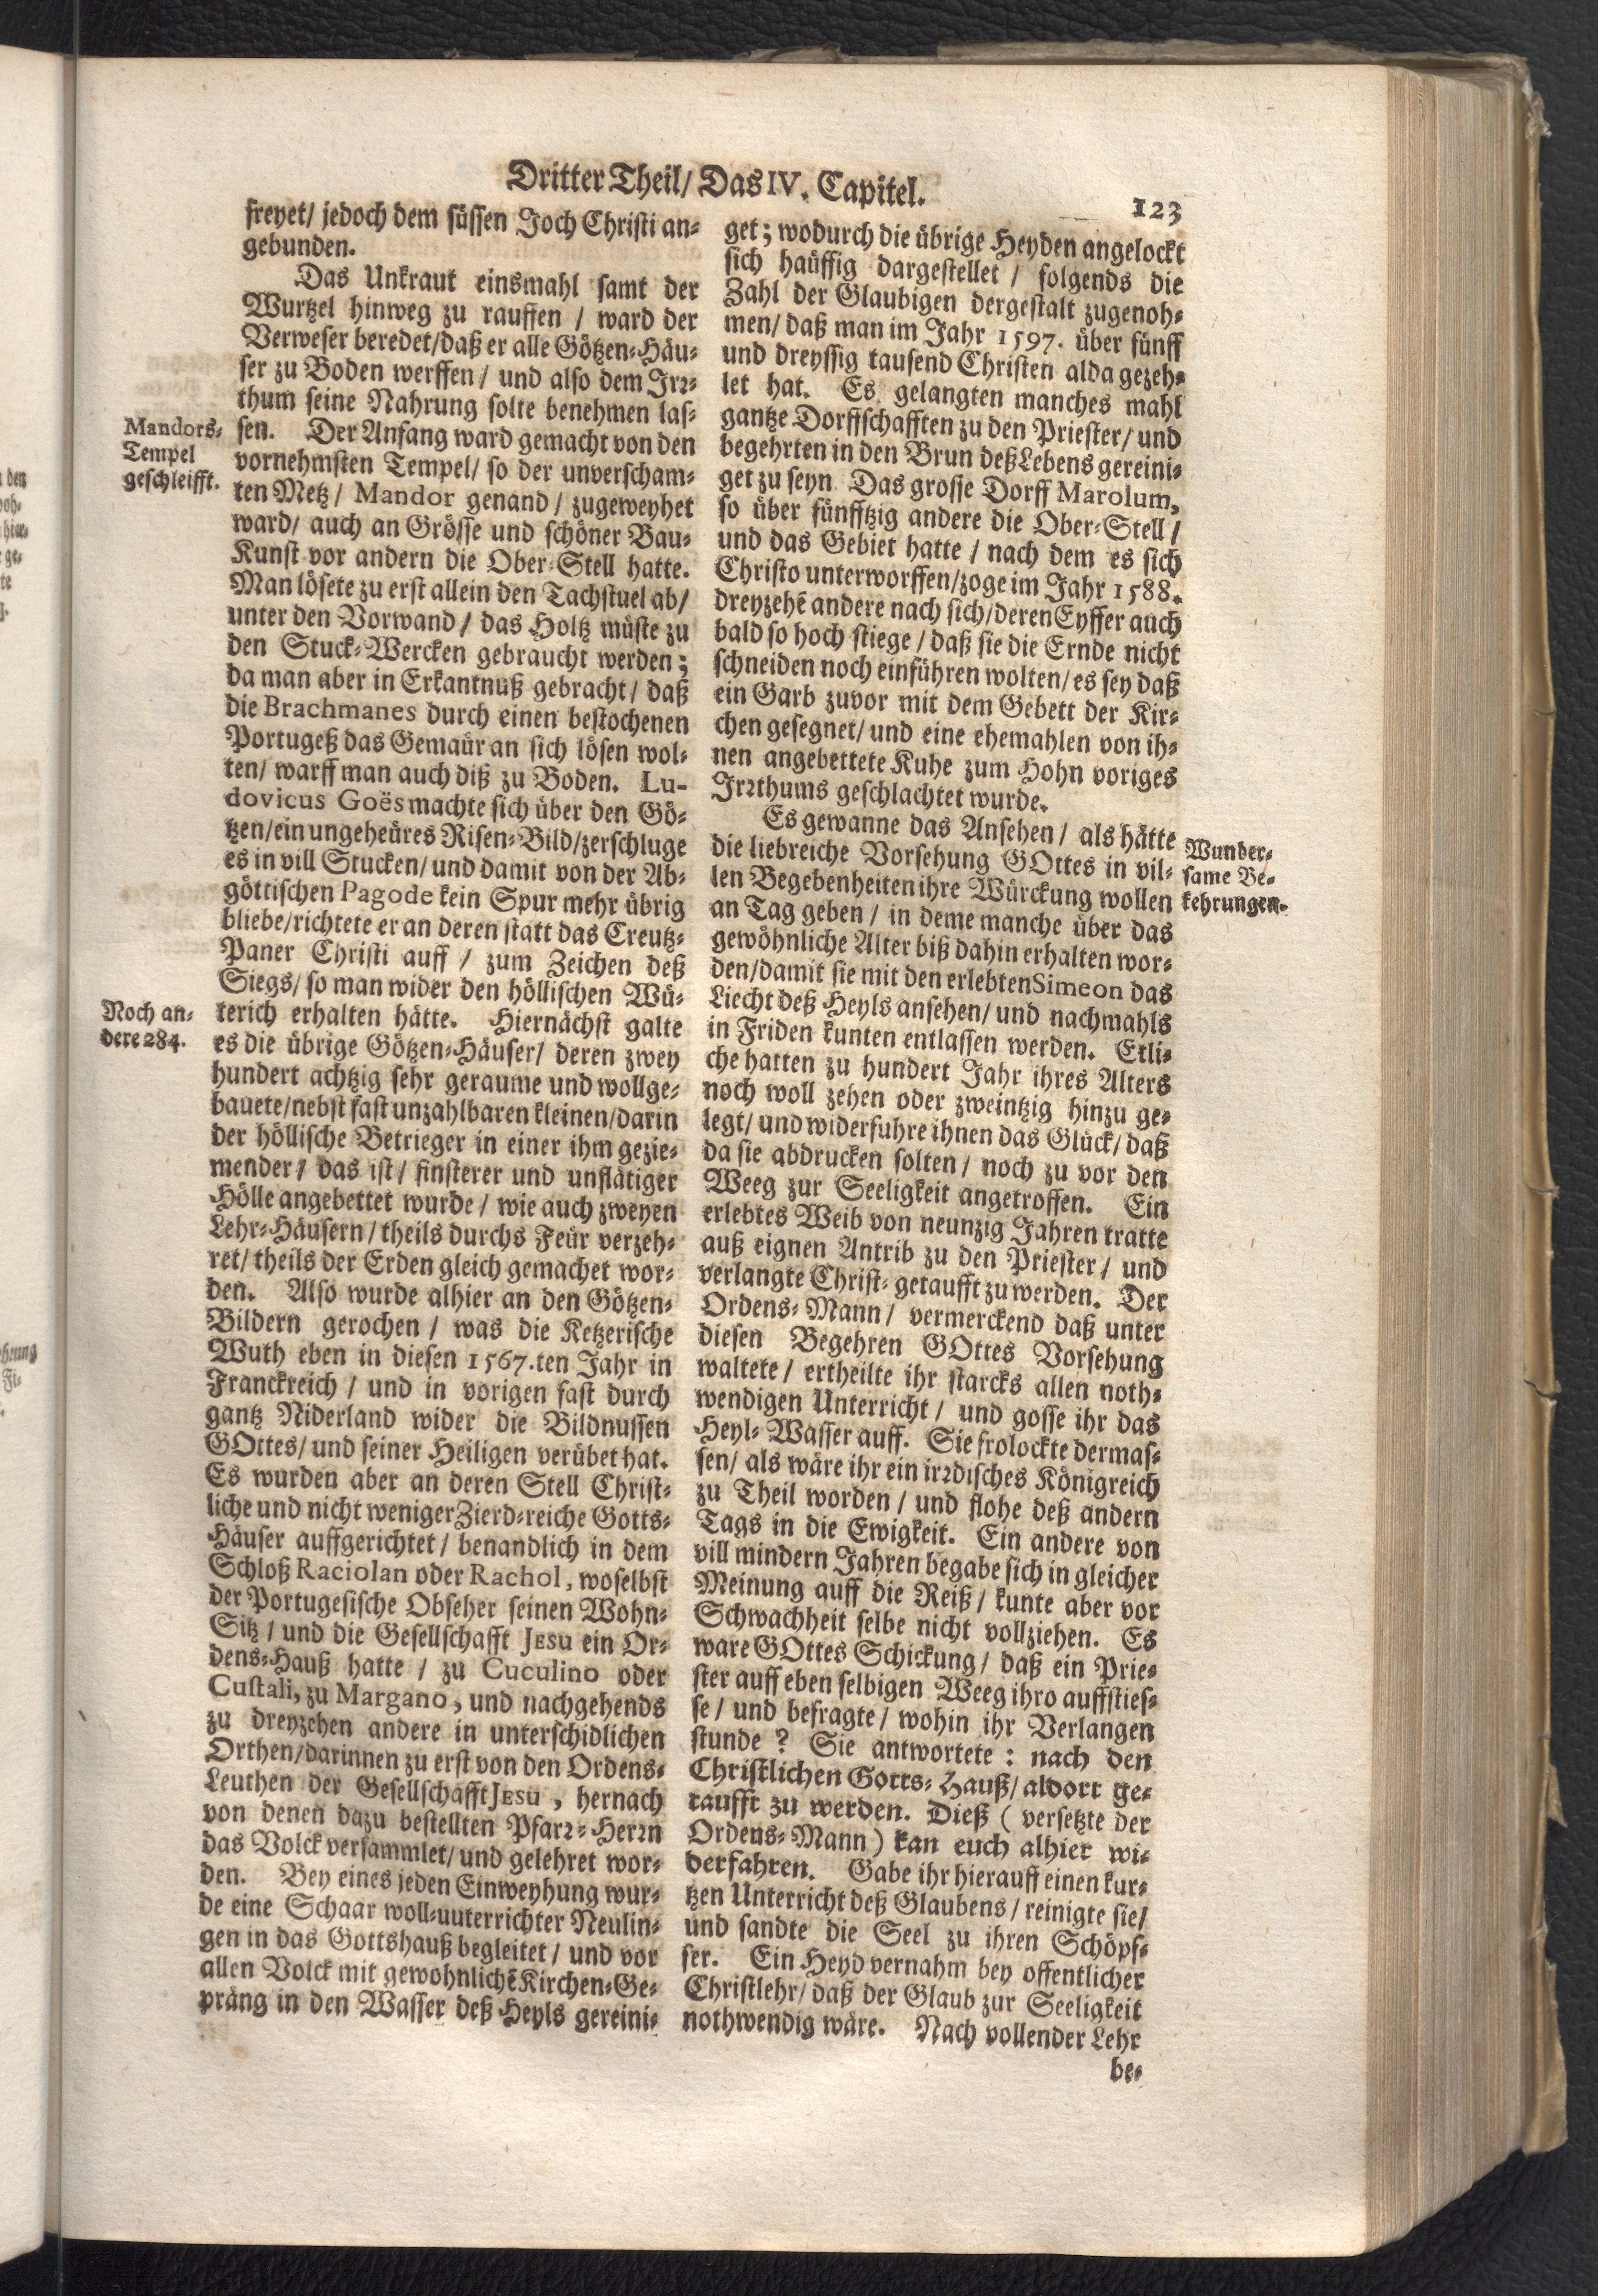 Dritter Theil/ Das IV. Capitel.
123
freyet/ jedoch dem süssen Joch Christi an-
gebunden.
Das Unkraut einsmahl samt der
Wurtzel hinweg zu rauffen / ward der
Verweser beredet/daß er alle Götzen-Häu-
ser zu Boden werffen / und also dem Irꝛ-
thum seine Nahrung solte benehmen las-
sen. Der Anfang ward gemacht von den
vornehmsten Tempel/ so der unverscham-
ten Metz/ Mandor genand / zugeweyhet
ward/ auch an Grösse und schöner Bau-
Kunst vor andern die Ober-Stell hatte.
Man lösete zu erst allein den Tachstuel ab/
unter den Vorwand / das Holtz müste zu
den Stuck-Wercken gebraucht werden;
da man aber in Erkantnuß gebracht / daß
die Brachmanes durch einen bestochenen
Portugeß das Gemäur an sich lösen wol-
ten/ warff man auch diß zu Boden. Lu-
dovicus Goës machte sich über den Gö-
tzen/ein ungeheüres Risen-Bild/zerschluge
es in vill Stucken/ und damit von der Ab-
göttischen Pagode kein Spur mehr übrig
bliebe/richtete er an deren statt das Creutz-
Paner Christi auff / zum Zeichen deß
Siegs/ so man wider den höllischen Wü-
terich erhalten hätte. Hiernächst galte
es die übrige Götzen-Häuser/ deren zwey
hundert achtzig sehr geraume und wollge-
bauete/nebst fast unzahlbaren kleinen/darin
der höllische Betrieger in einer ihm gezie-
mender / das ist / finsterer und unflätiger
Hölle angebettet wurde / wie auch zweyen
Lehr-Häusern / theils durchs Feür verzeh-
ret/ theils der Erden gleich gemachet wor-
den. Also wurde alhier an den Götzen-
Bildern gerochen / was die Ketzerische
Wuth eben in diesen 1567.ten Jahr in
Franckreich / und in vorigen fast durch
gantz Niderland wider die Bildnussen
GOttes/ und seiner Heiligen verübet hat.
Es wurden aber an deren Stell Christ-
liche und nicht weniger Zierd-reiche Gotts-
Häuser auffgerichtet / benandlich in dem
Schloß Raciolan oder Rachol, woselbst
der Portugesische Obseher seinen Wohn-
Sitz / und die Gesellschafft JESU ein Or-
dens-Hauß hatte / zu Cuculino oder
Custali, zu Margano, und nachgehends
zu dreyzehen andere in unterschidlichen
Orthen/darinnen zu erst von den Ordens-
Leuthen der Gesellschafft JESU, hernach
von denen dazu bestellten Pfarꝛ-Herꝛn
das Volck versammlet/ und gelehret wor-
den. Bey eines jeden Einweyhung wur-
de eine Schaar woll-uuterrichter Neulin-
gen in das Gottshauß begleitet / und vor
allen Volck mit gewohnlichē Kirchen-Ge-
präng in den Wasser deß Heyls gereini-
Mandors-
Tempel
geschleifft.
Noch an-
dere 284.
get; wodurch die übrige Heyden angelockt
sich haüffig dargestellet / folgends die
Zahl der Glaubigen dergestalt zugenoh-
men/ daß man im Jahr 1597. über fünff
und dreyssig tausend Christen alda gezeh-
let hat. Es gelangten manches mahl
gantze Dorffschafften zu den Priester/ und
begehrten in den Brun deß Lebens gereini-
get zu seyn. Das grosse Dorff Marolum,
so über fünfftzig andere die Ober-Stell /
und das Gebiet hatte / nach dem es sich
Christo unterworffen/zoge im Jahr 1588.
dreyzehē andere nach sich/deren Eyffer auch
bald so hoch stiege / daß sie die Ernde nicht
schneiden noch einführen wolten/ es sey daß
ein Garb zuvor mit dem Gebett der Kir-
chen gesegnet/ und eine ehemahlen von ih-
nen angebettete Kuhe zum Hohn voriges
Irꝛthums geschlachtet wurde.
Es gewanne das Ansehen / als hätte
die liebreiche Vorsehung GOttes in vil-
len Begebenheiten ihre Würckung wollen
an Tag geben / in deme manche über das
gewöhnliche Alter biß dahin erhalten wor-
den/damit sie mit den erlebten Simeon das
Liecht deß Heyls ansehen/ und nachmahls
in Friden kunten entlassen werden. Etli-
che hatten zu hundert Jahr ihres Alters
noch woll zehen oder zweintzig hinzu ge-
legt/ und widerfuhre ihnen das Glück/ daß
da sie abdrucken solten / noch zu vor den
Weeg zur Seeligkeit angetroffen. Ein
erlebtes Weib von neunzig Jahren tratte
auß eignen Antrib zu den Priester / und
verlangte Christ-getaufft zu werden. Der
Ordens-Mann / vermerckend daß unter
diesen Begehren GOttes Vorsehung
waltete / ertheilte ihr starcks allen noth-
wendigen Unterricht / und gosse ihr das
Heyl-Wasser auff. Sie frolockte dermas-
sen/ als wäre ihr ein irꝛdisches Königreich
zu Theil worden / und flohe deß andern
Tags in die Ewigkeit. Ein andere von
vill mindern Jahren begabe sich in gleicher
Meinung auff die Reiß / kunte aber vor
Schwachheit selbe nicht vollziehen. Es
ware GOttes Schickung / daß ein Prie-
ster auff eben selbigen Weeg ihro auffsties-
se / und befragte / wohin ihr Verlangen
stunde ? Sie antwortete : nach den
Christlichen Gotts-Hauß/ aldort ge-
taufft zu werden. Dieß ( versetzte der
Ordens-Mann ) kan euch alhier wi-
derfahren. Gabe ihr hierauff einen kur-
tzen Unterricht deß Glaubens / reinigte sie/
und sandte die Seel zu ihren Schöpf-
fer. Ein Heyd vernahm bey offentlicher
Christlehr/ daß der Glaub zur Seeligkeit
nothwendig wäre. Nach vollender Lehr
be-
Wunder-
same Be-
kehrungen.